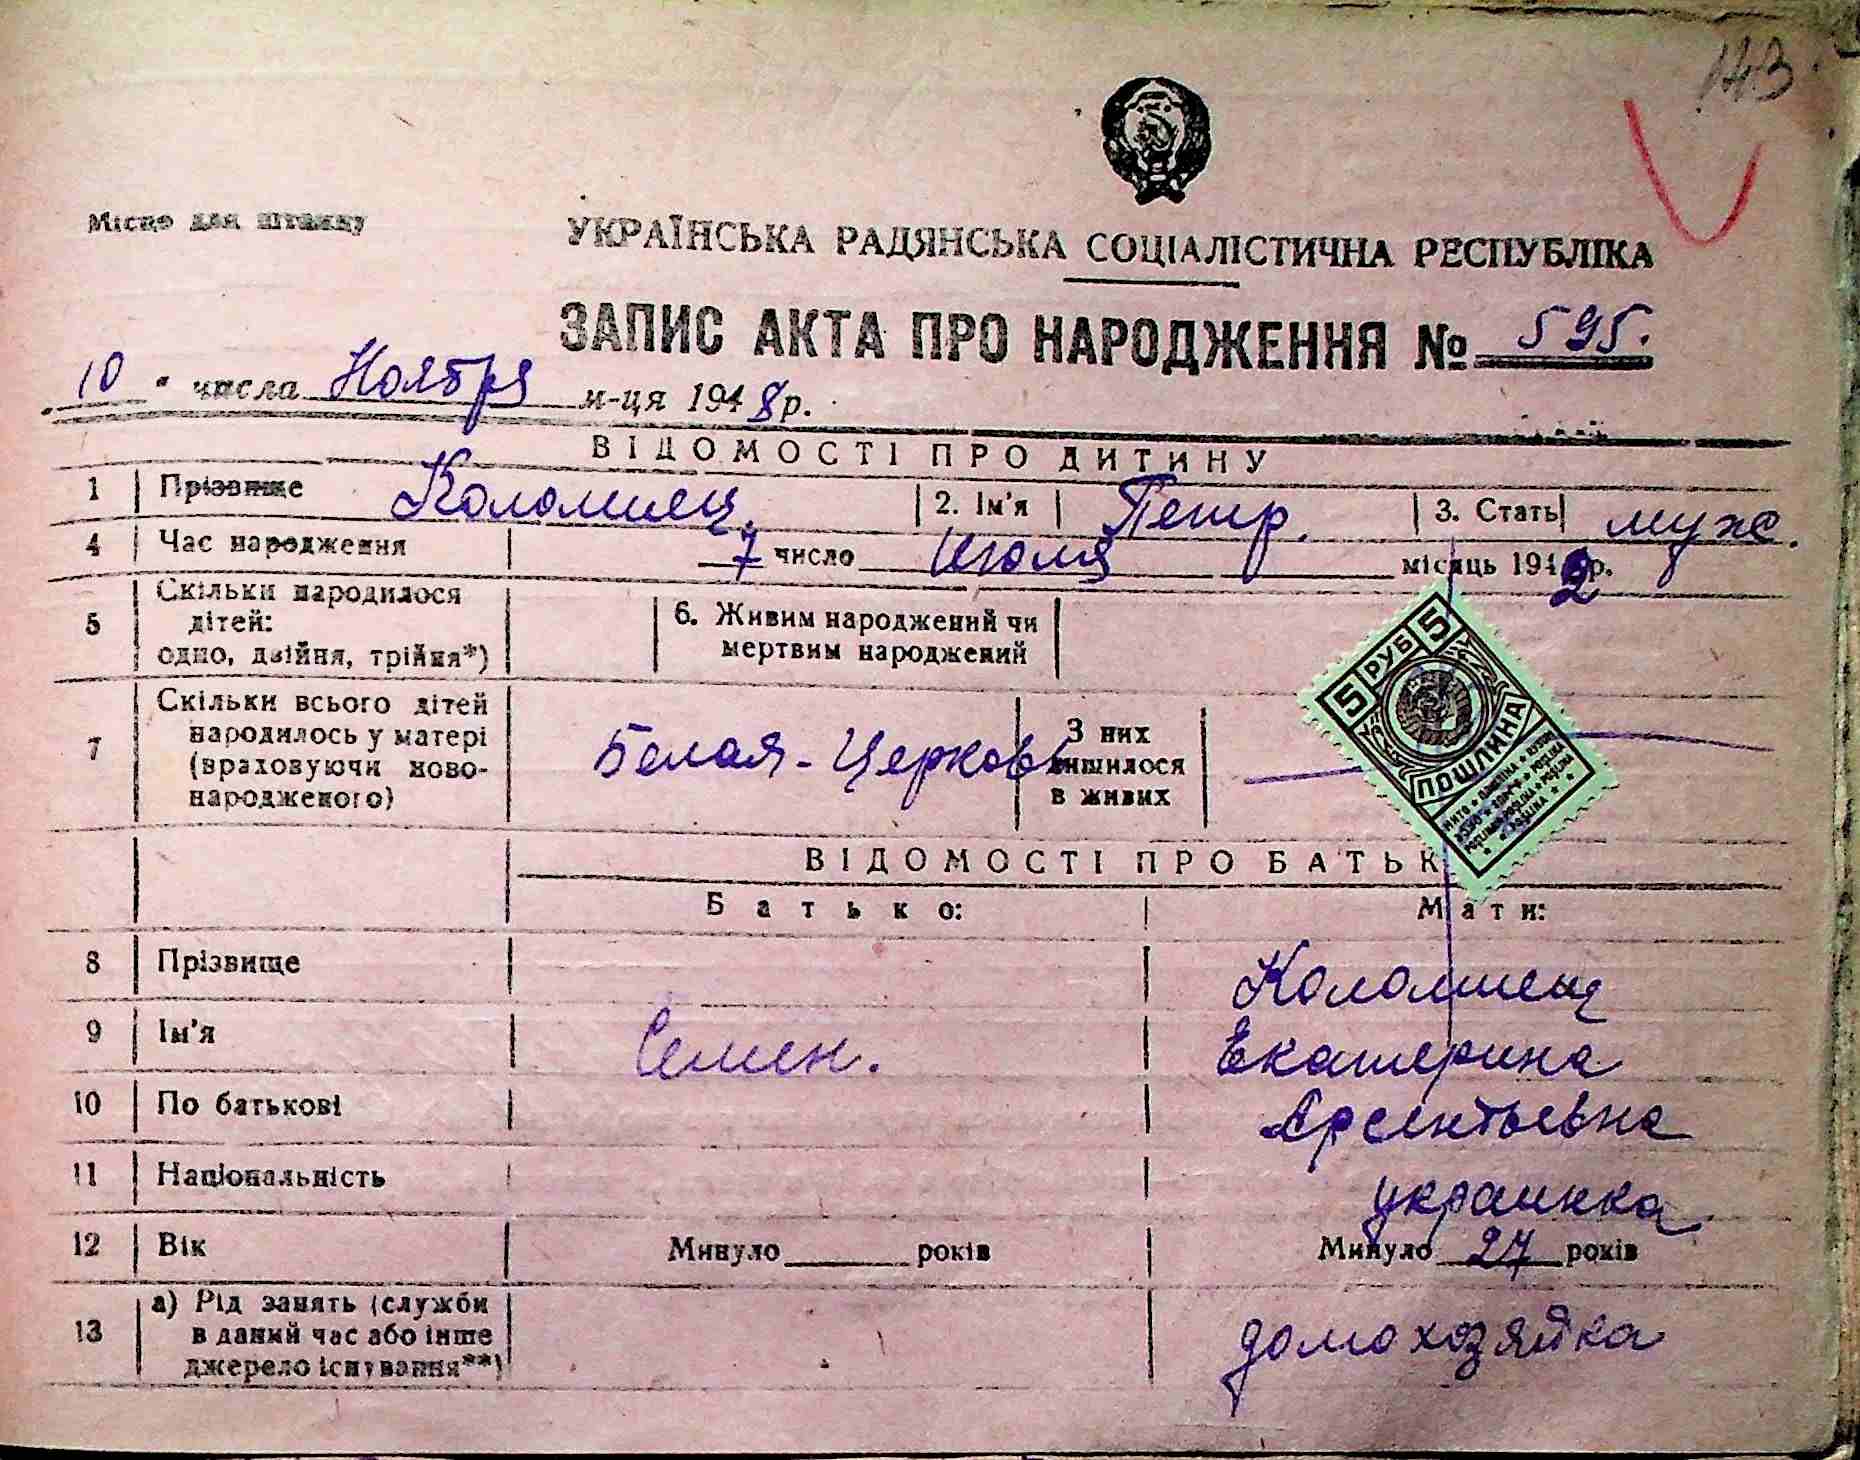 143.
Місце для штампу
УКРАЇНСЬКА РАДЯНСЬКА СОЦІАЛІСТИЧНА РЕСПУБЛІКА
ЗАПИС АКТА ПРО НАРОДЖЕННЯ № 595.
10 " числа Ноября м-ця 1948 р.
ВІДОМОСТІ ПРО ДИТИНУ
1 Прізвище Коломиец. 2. Ім'я Петр. 3. Стать муж.
4 Час народження 7 число Июля місяць 1942 р.
5 Скільки народилося
дітей:
одно, двійня, трійня*)
6. Живим народжений чи
мертвим народжений
7 Скільки всього дітей
народилось у матері
(враховуючи ново-
народженого)
Белая-Церковь
З них
лишилося
в живих
5 РУБ 5
ПОШЛИНА
ВІДОМОСТІ ПРО БАТЬК
Батько: Мати:
8 Прізвище Коломиец
9 Ім'я Семен. Екатерина
10 По батькові Арсентьевна
11 Національність украинка
12 Вік Минуло років Минуло 27 років
13 а) Рід занять (служби
в даний час або інше
джерело існування**)
домохозяйка